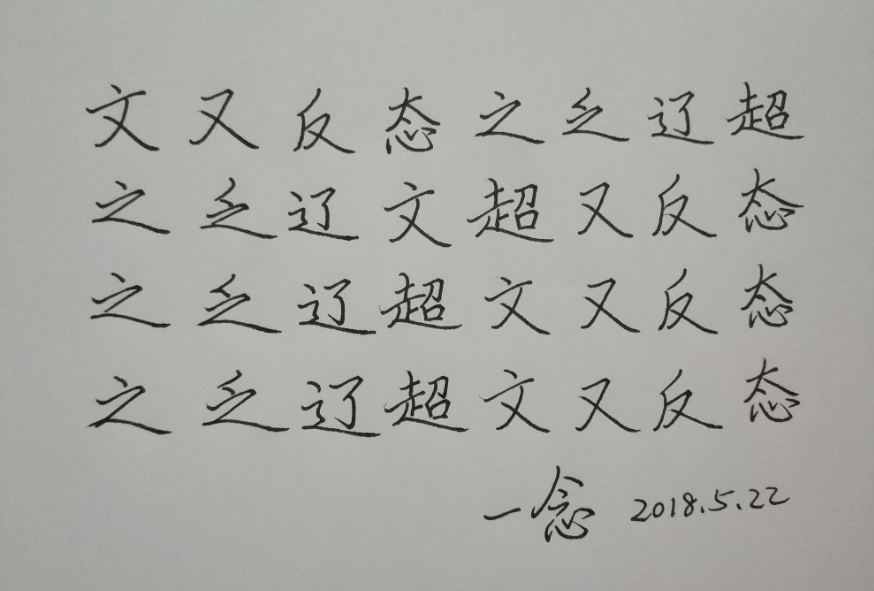 文又反态之乏辽超
之乏辽文超又反态
之乏辽超文又反态
之乏辽超文又反态
一念 2018.5.22